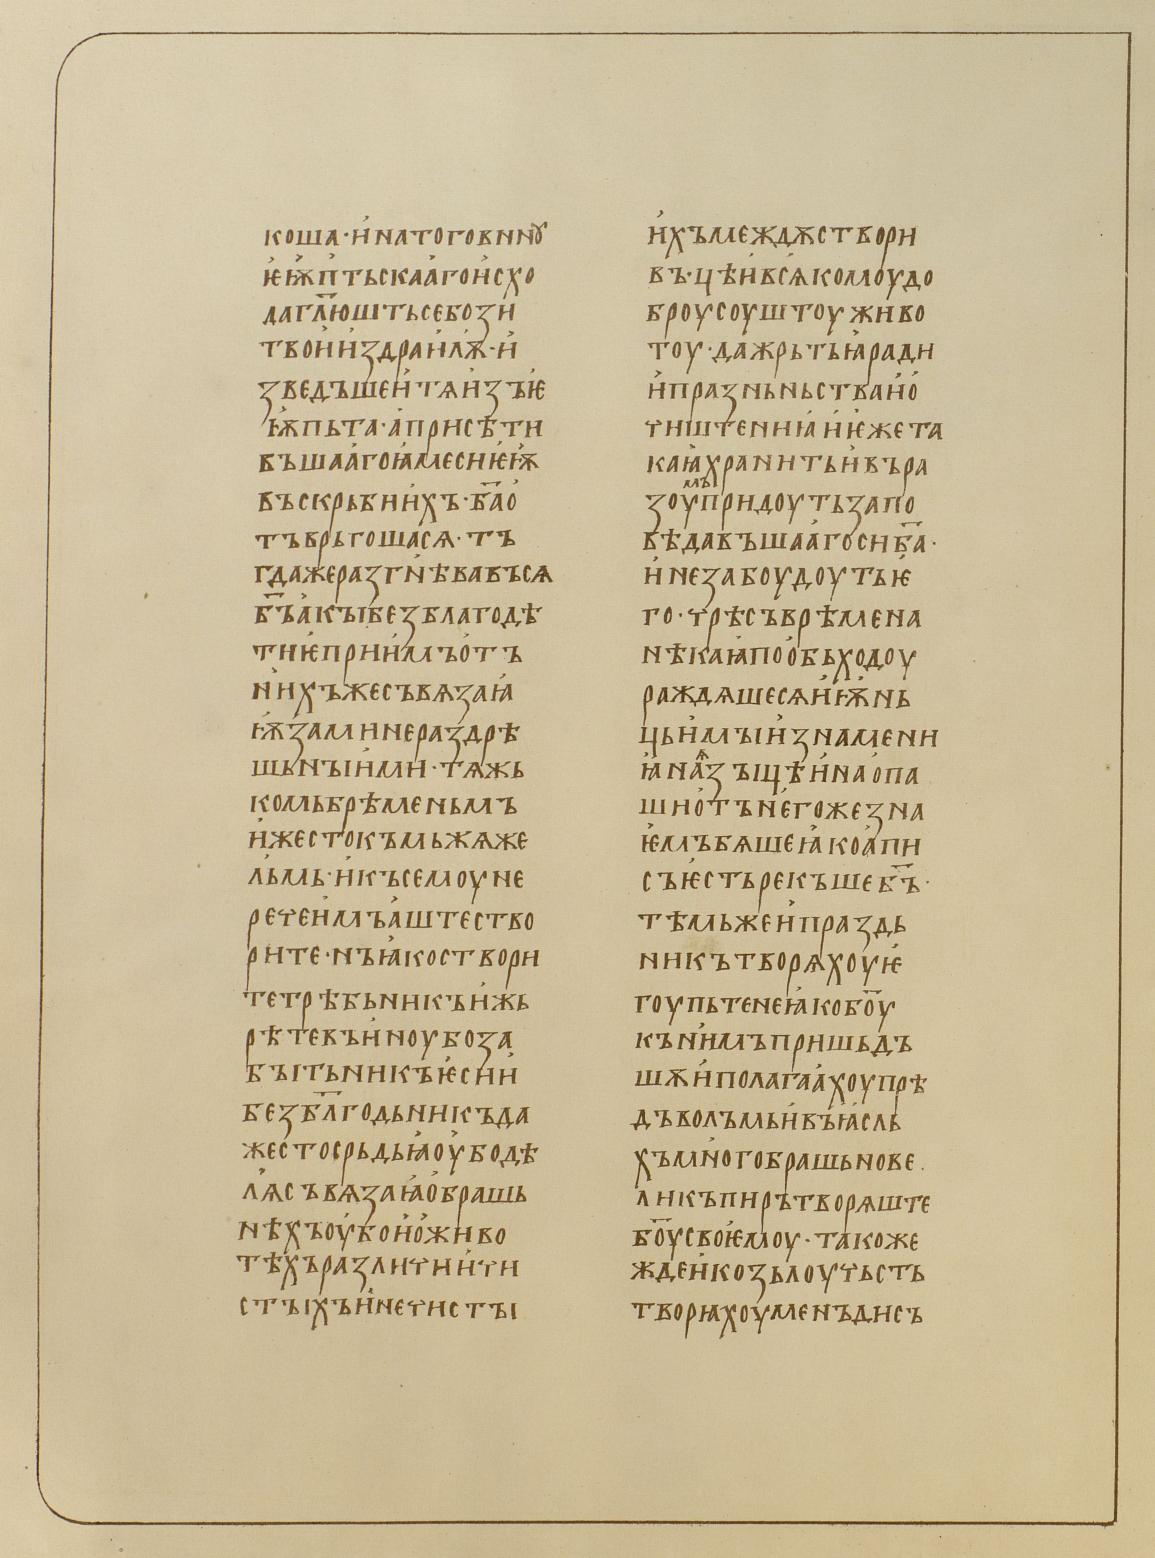 коша·и҆натоговинꙋ
ѥ҆ѭ҆п҆тьскаа҆гои҆схо
даг҃люштьсебози
твои҆и҆здраи҆лѫ·и҆
зведъшеи҆тѧи҆зъѥ҆
ѭ҆пьта·а҆присѣти
въшаа҆гоꙗ҆месиѥ҆ѭ҆
въскрьбии҆хъ·б҃ао҆
тъврьгошасѧ·тъ
гдажеразгнѣвавъсѧ
б҃ъа҆кꙑбезблагодѣ
тиѥ҆прии҆мъо҆тъ
нихъжесъвѧзаꙗ҆
ѭ҆заминераздрѣ
шьнꙑи҆ми·тѧжь
комьбрѣменьмъ
и҆жестокъмьжѧже
льмь·и҆късемоуне
речеи҆мъа҆штество
рите·нъꙗ҆косTвори
тетрѣбьникъи҆жь
рѣтевъи҆ноубоза
бꙑтьникъѥ҆сии҆
безбл҃годьникъда
жестосрьдьꙗ҆оу҆бодѣ
лѧсъвѧзаꙗ҆о҆брашь
нѣхъоу҆бои҆о҆живо
тѣхъразличии҆чи
стꙑхъи҆нечистꙑ
и҆хъмеждѫствори
въ·цѣи҆всѧкомоудо
броусоуштоуживо
тоу·дажрьтьꙗ҆ради
и҆празньньстваи҆о҆
чиштениꙗ҆и҆ѥ҆жета
каꙗ҆хранитьи҆въра
зоумъпридоутьзапо
вѣдавъшаа҆госиб҃а·
и҆незабоудоутьѥ҆
го·чрѣсъврѣмена
нѣкаꙗ҆поо҆бьходоу
раждѧшесѧи҆ѭ҆нь
цьи҆мꙑи҆знамени
ꙗ҆наѧ҆зꙑцѣи҆нао҆па
шио҆тънегожезна
ѥ҆мъбѧшеꙗ҆коа҆пи
съѥ҆стьрекъшеб҃ъ·
тѣмьжеи҆праздь
никътворѧхоуѥ҆
гоупьтенеꙗ҆кобо҃у
кънимъпришьдъ
шѫи҆полагаа҆хоупрѣ
дъволъмьи҆въꙗ҆сль
хъмногобрашьнове
ликъпирътворѧште
бо҃усвоѥ҆моу·такоже
ждеи҆козьлоучьсть
творꙗхоумеnъдисъ